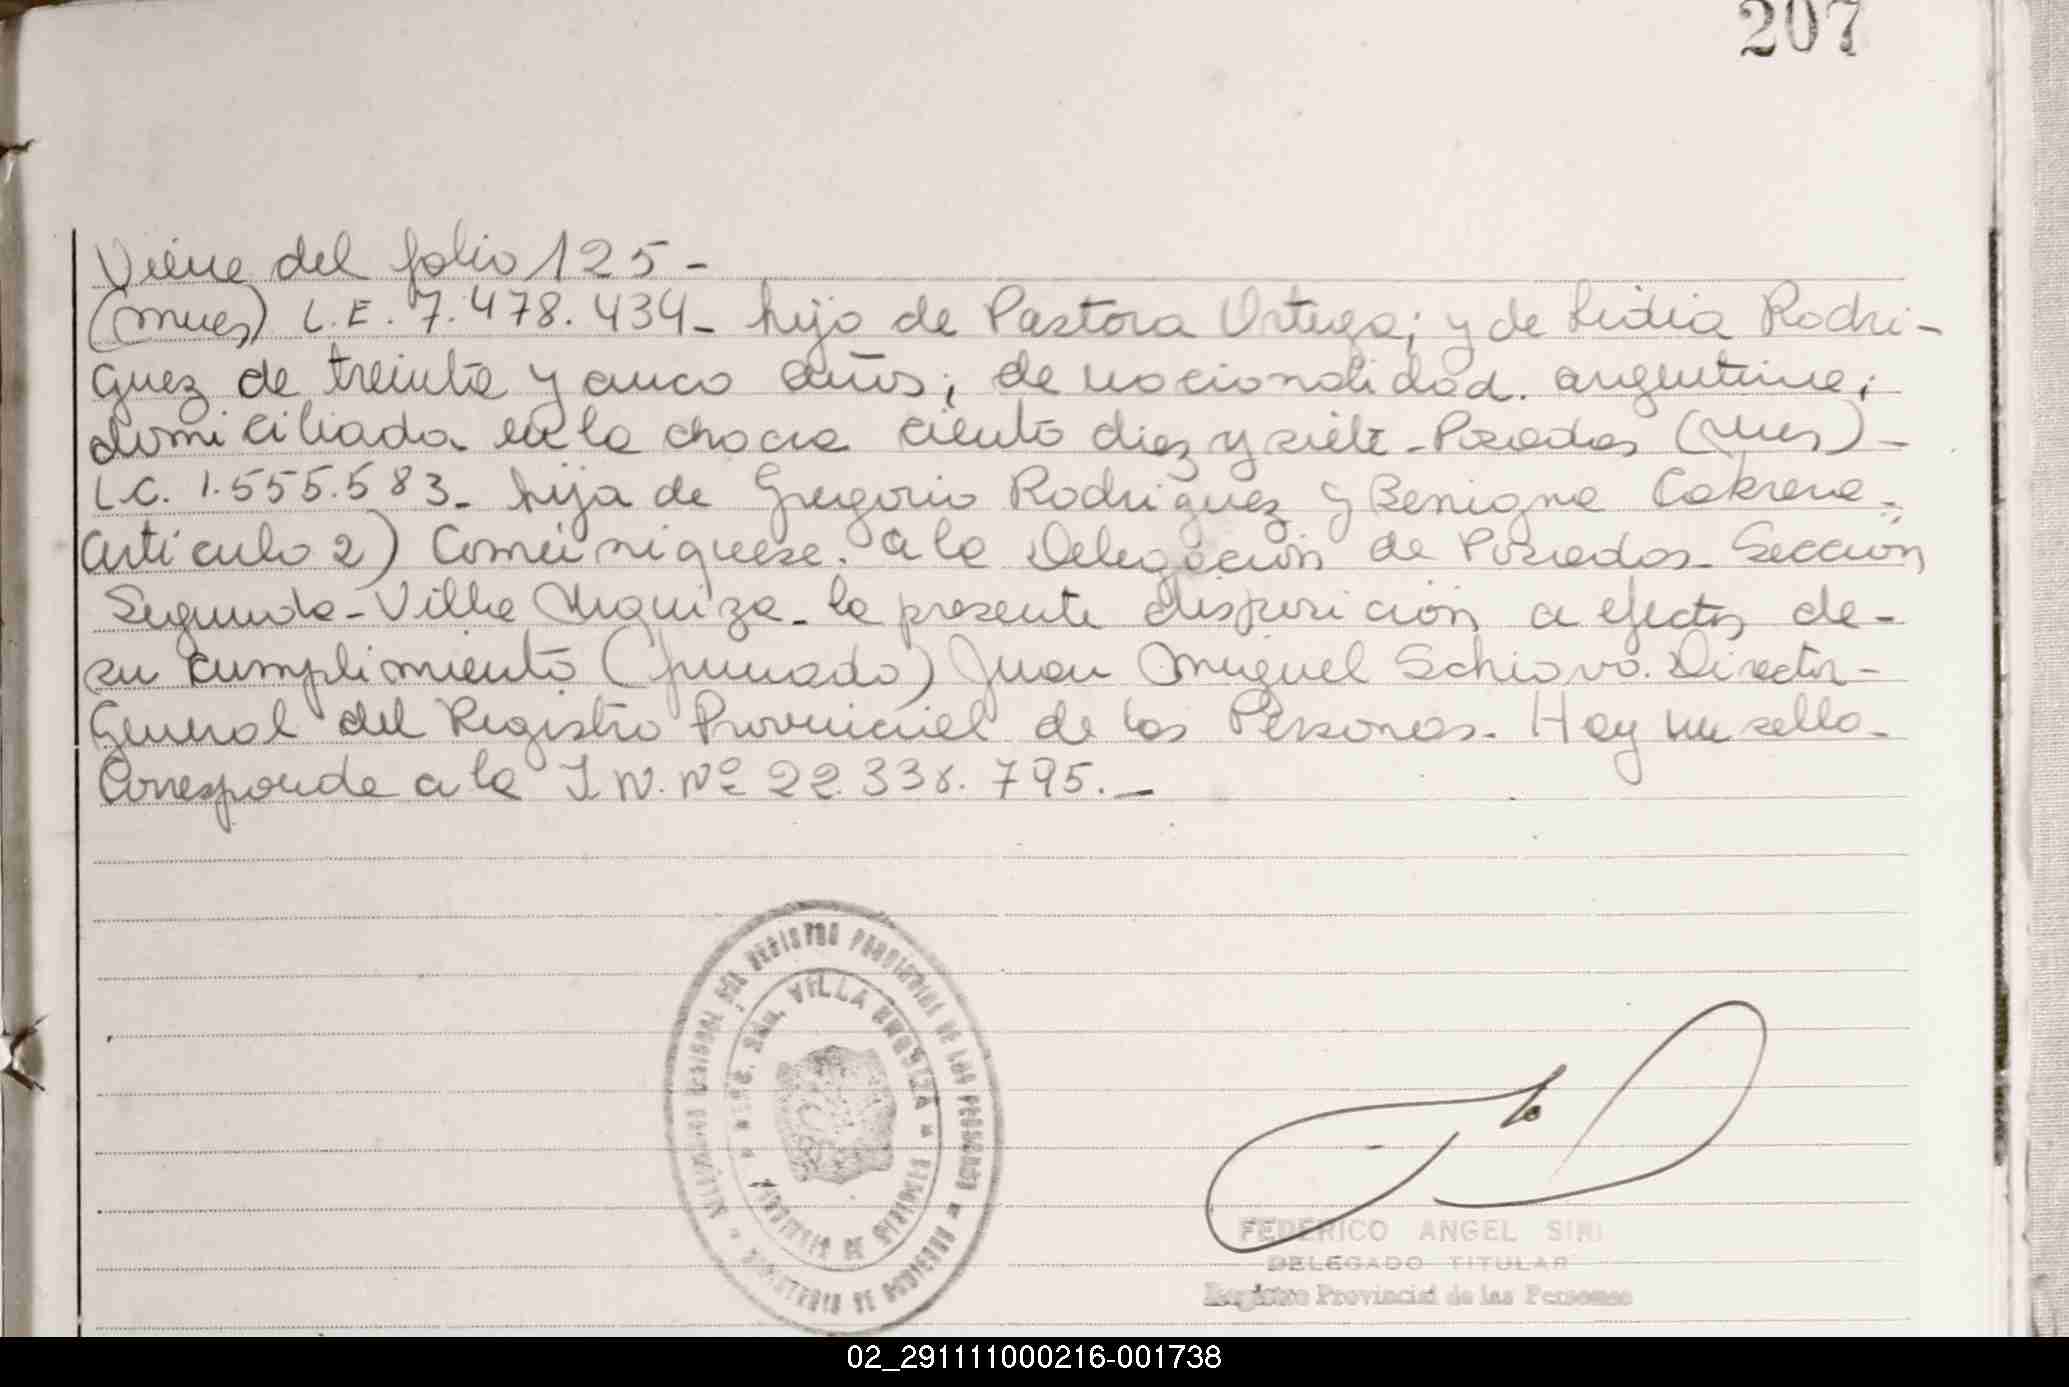 207
Viene del folio 125-
(mnes) L.E. 7.478.434- hijo de Pastora Ortega; y de Lidia Rodri-
guez de treinta y cinco años; de nacionalidad. argentina;
domiciliada en la chacra ciento diez y siete- Posadas (Mnes)-
L.C. 1.555.583- hija de Gregorio Rodriguez y Benigna Cabrera-
Artículo 2) Comuníquese. a la Delegación de Posadas- Sección
Segunda- Villa Urquiza- la presente disposición a efectos de-
su cumplimiento (firmado) Juan Miguel Schiavo. Director-
General del Registro Provincial de las Personas. Hay un sello-
Corresponde a la I.N. Nº 22.338.795.-
REGISTRO PROVINCIAL DE LAS PERSONAS
MINISTERIO DE GOBIERNO
VILLA URQUIZA
PROVINCIA DE MISIONES
FEDERICO ANGEL SIRI
DELEGADO TITULAR
Registro Provincial de las Personas
02_291111000216-001738